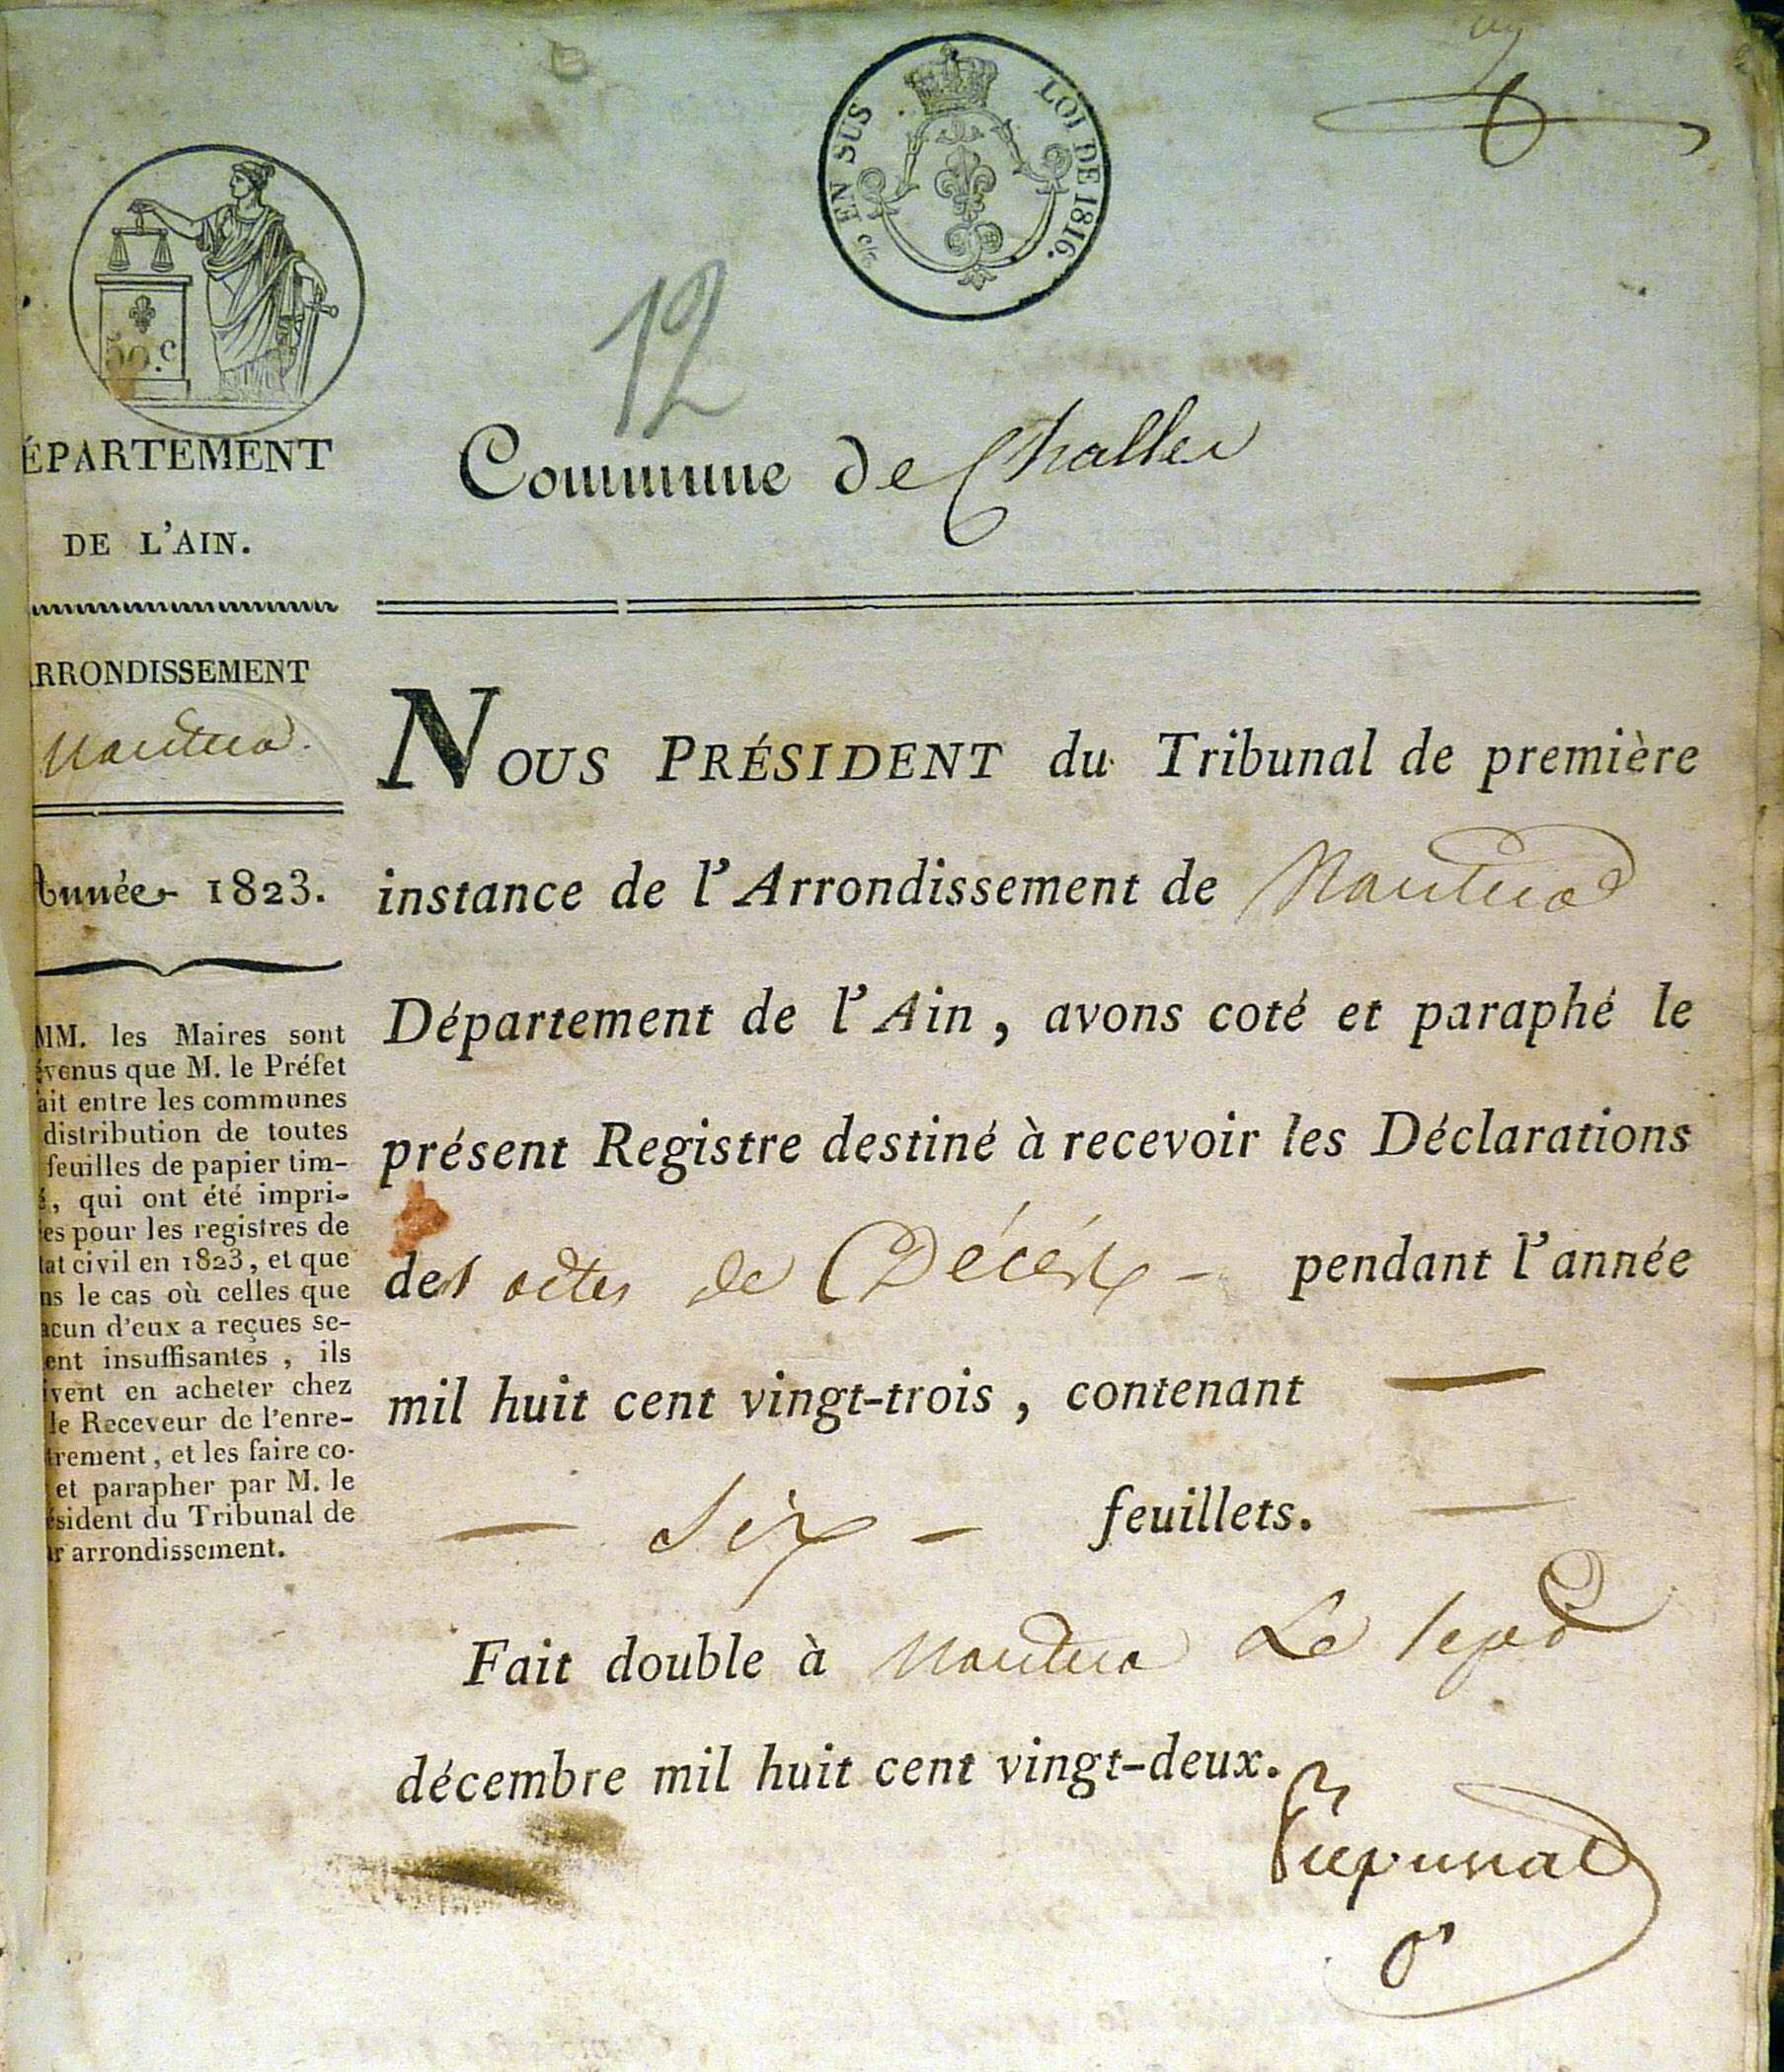 EN SUS
LOI DE 1816.
50.c
12
ÉPARTEMENT
DE L'AIN.
Commune de Challex
RRONDISSEMENT
Nantua
Année 1823.
MM. les Maires sont
évenus que M. le Préfet
ait entre les communes
distribution de toutes
feuilles de papier tim-
é, qui ont été impri-
es pour les registres de
tat civil en 1823, et que
ns le cas où celles que
acun d'eux a reçues se-
ent insuffisantes, ils
ivent en acheter chez
le Receveur de l'enre-
trement, et les faire co-
et parapher par M. le
ésident du Tribunal de
r arrondissement.
NOUS PRÉSIDENT du Tribunal de première
instance de l'Arrondissement de Nantua
Département de l'Ain, avons coté et paraphé le
présent Registre destiné à recevoir les Déclarations
des actes de Décès - pendant l'année
mil huit cent vingt-trois, contenant —
— Six — feuillets. —
Fait double à Nantua Le sept
décembre mil huit cent vingt-deux.